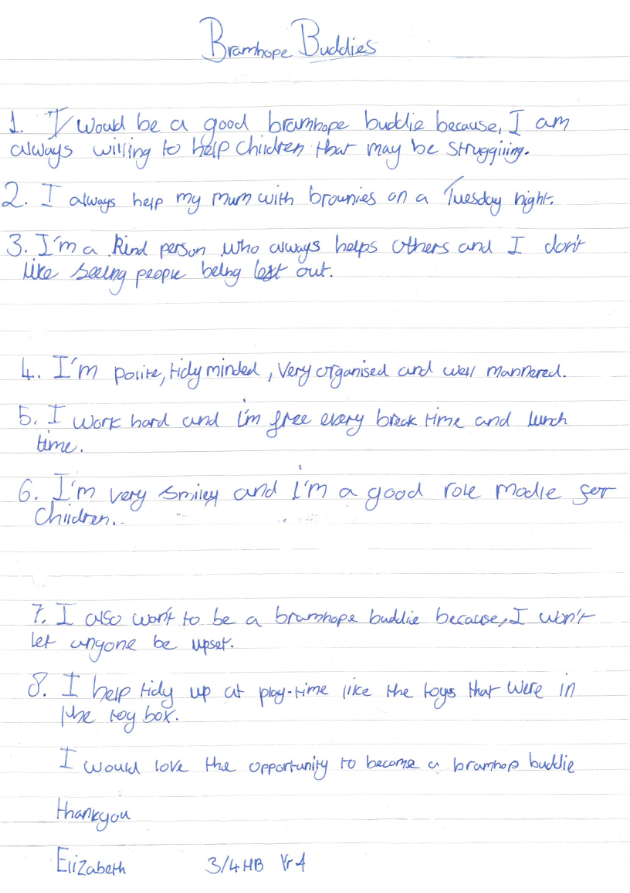 Bramhope Buddies
1. I would be a good bramhope buddie because, I am
always willing to help children that may be struggiiing.
2. I always help my mum with brownies on a Tuesday night.
3. I'm a kind person who always helps others and I don't
like seeing people being left out.
4. I'm polite, tidy minded, very organised and well mannered.
5. I work hard and i'm free every break time and lunch
time.
6. I'm very smiley and i'm a good role modle for
children.
7. I also won't to be a bramhope buddie because, I won't
let anyone be upset.
8. I help tidy up at play-time like the toys that were in
the toy box.
I would love the opportunity to become a bramhop buddie
thankyou
Elizabeth 3/4HB Yr 4